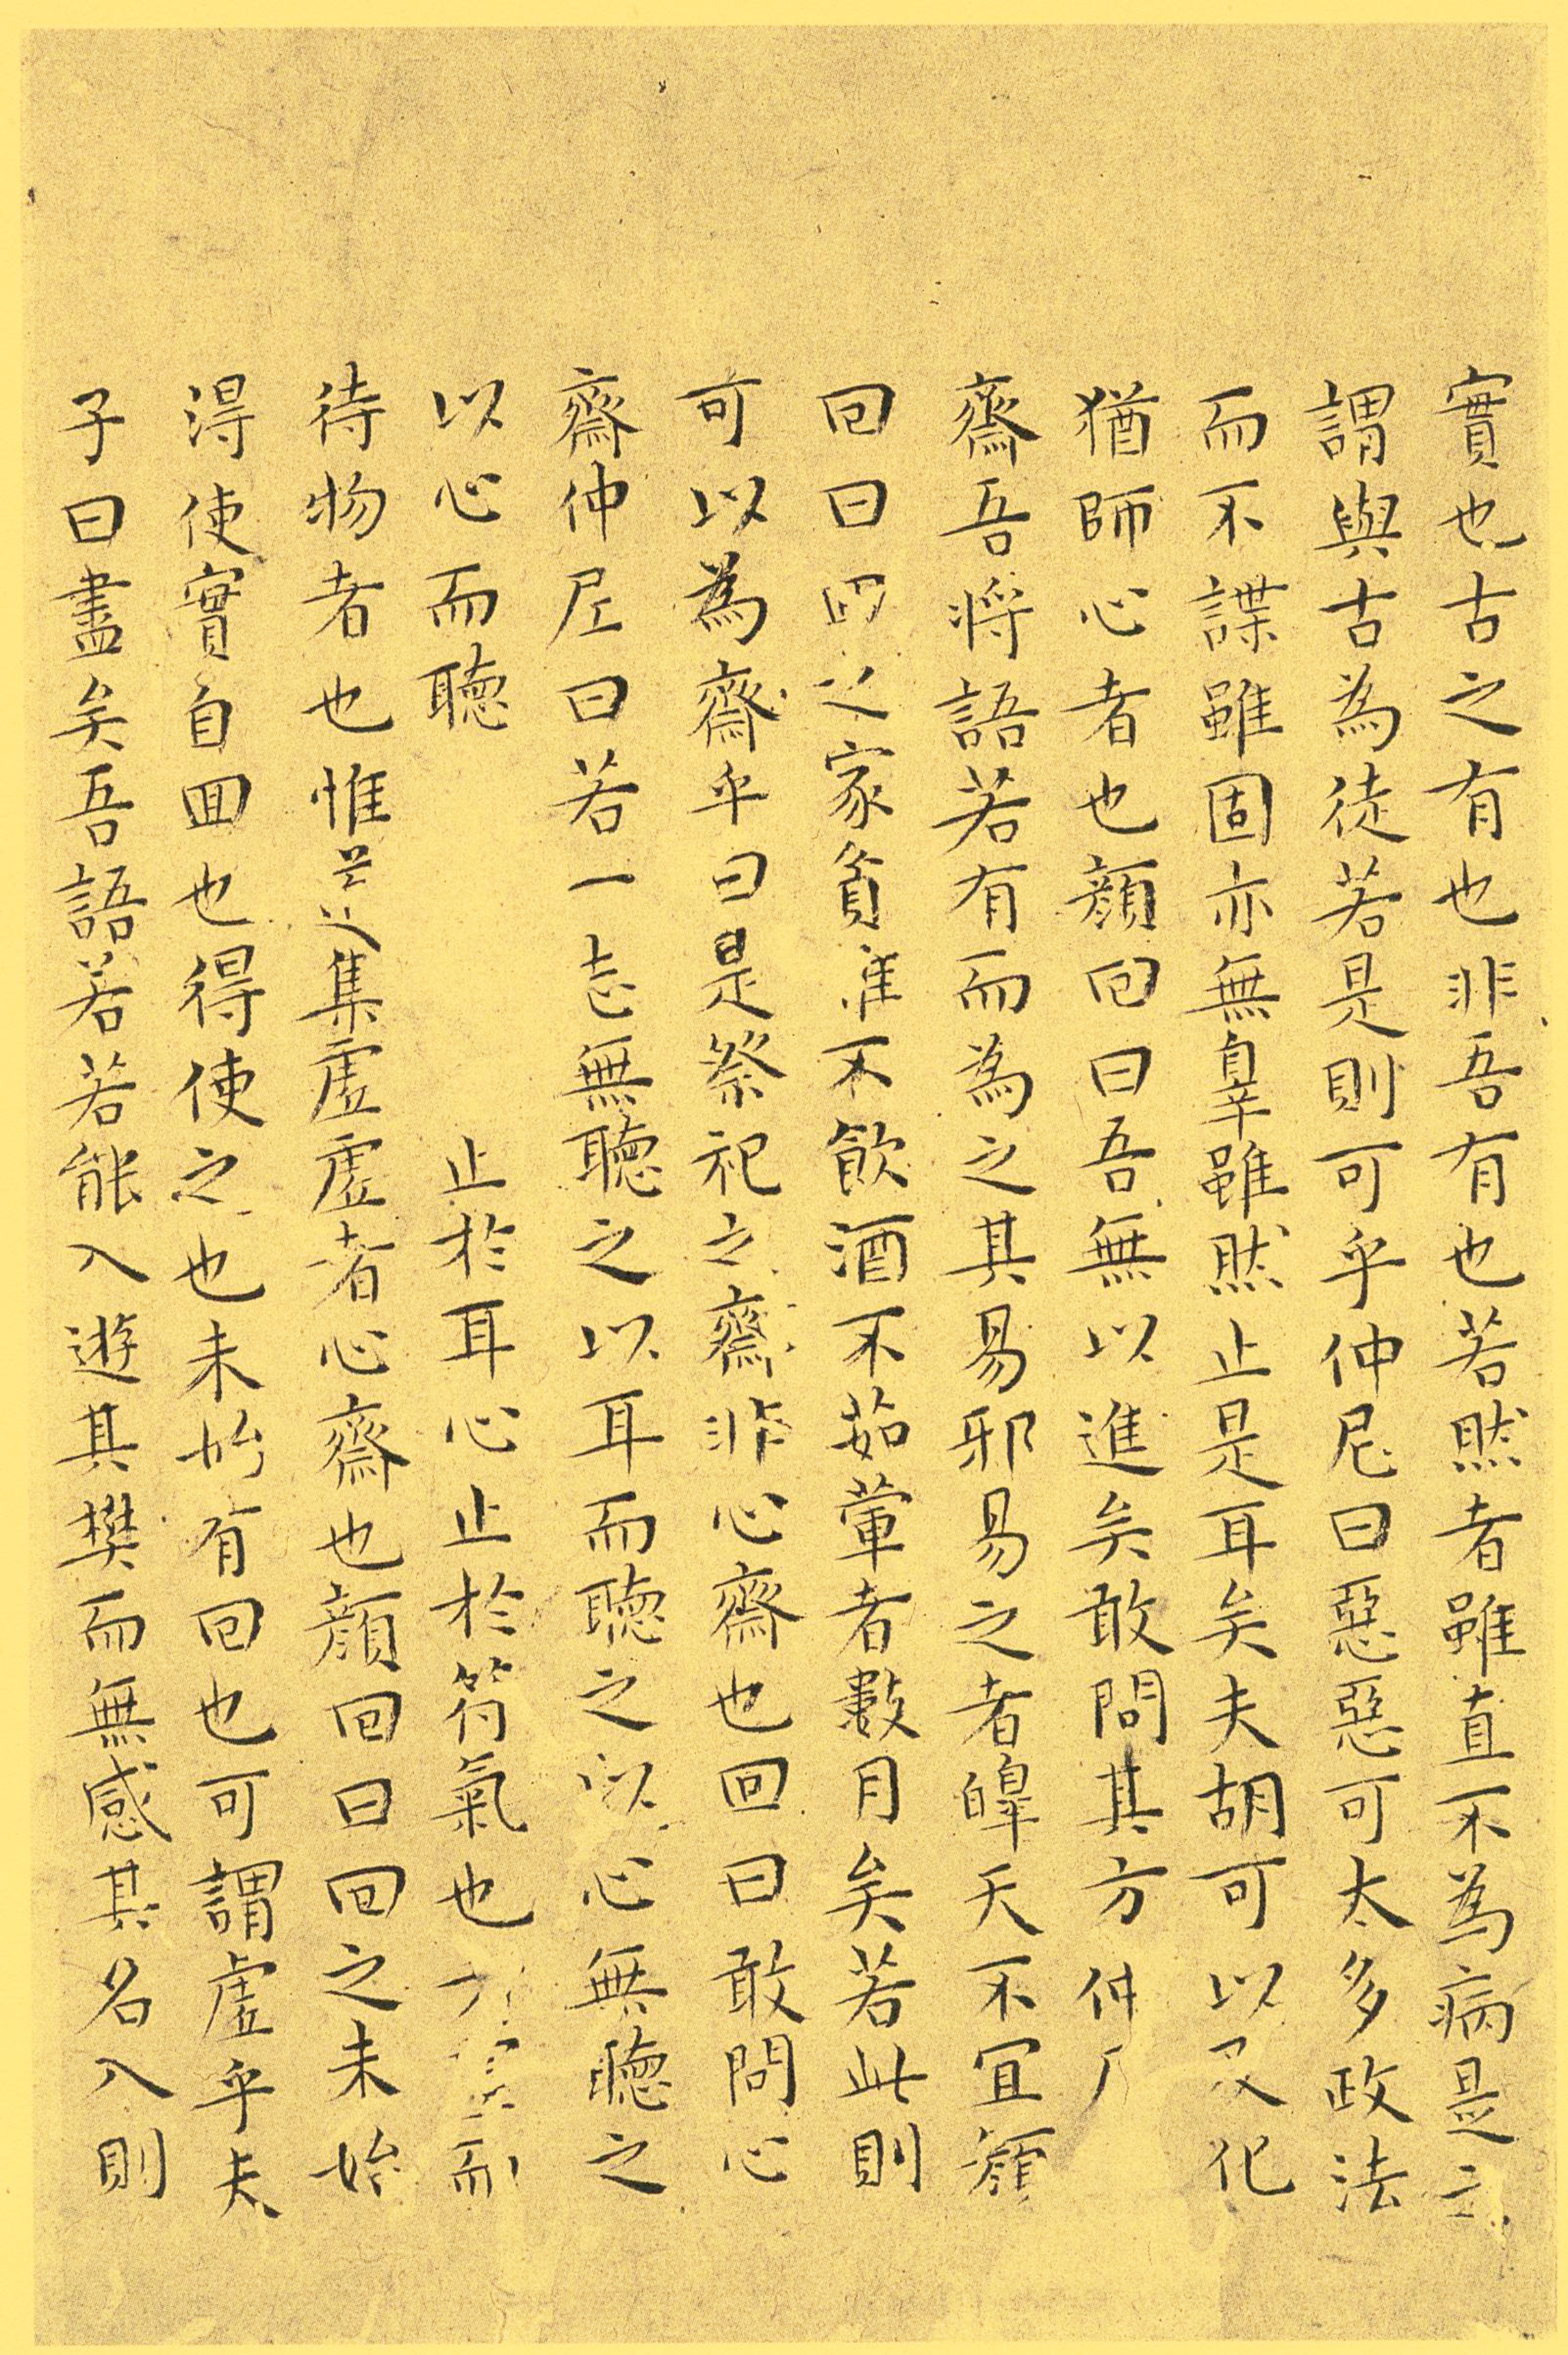 實也古之有也非吾有也若然者雖直不為病是之
謂與古為徒若是則可乎仲尼曰惡惡可太多政法
而不諜雖固亦無辠雖然止是耳矣夫胡可以及化
猶師心者也顏回曰吾無以進矣敢問其方仲
齋吾將語若有而為之其易邪易之者皞天不宜顏
回曰回之家貧唯不飲酒不茹葷者數月矣若此則
可以為齋乎曰是祭祀之齋非心齋也回曰敢問心
齋仲尼曰若一志無聽之以耳而聽之以心無聽之
以心而聽止於耳心止於符氣也而
待物者也惟集虛虛者心齋也顏回曰回之未始
得使實自回也得使之也未始有回也可謂虛乎夫
子曰盡矣吾語若若能入遊其樊而無感其名入則